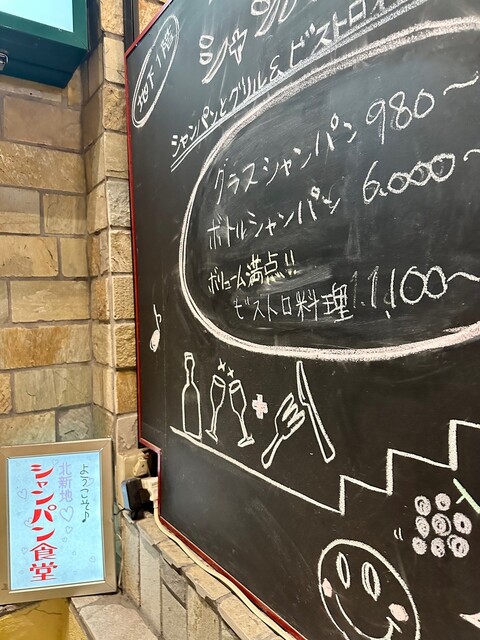 地下1階
シャン
シャンパンとグリル&ビストロ
グラスシャンパン 980〜
ボトルシャンパン 6.000〜
ボリューム満点!!
ビストロ料理 1,100〜
ようこそ♪
北新地♡
シャンパン食堂